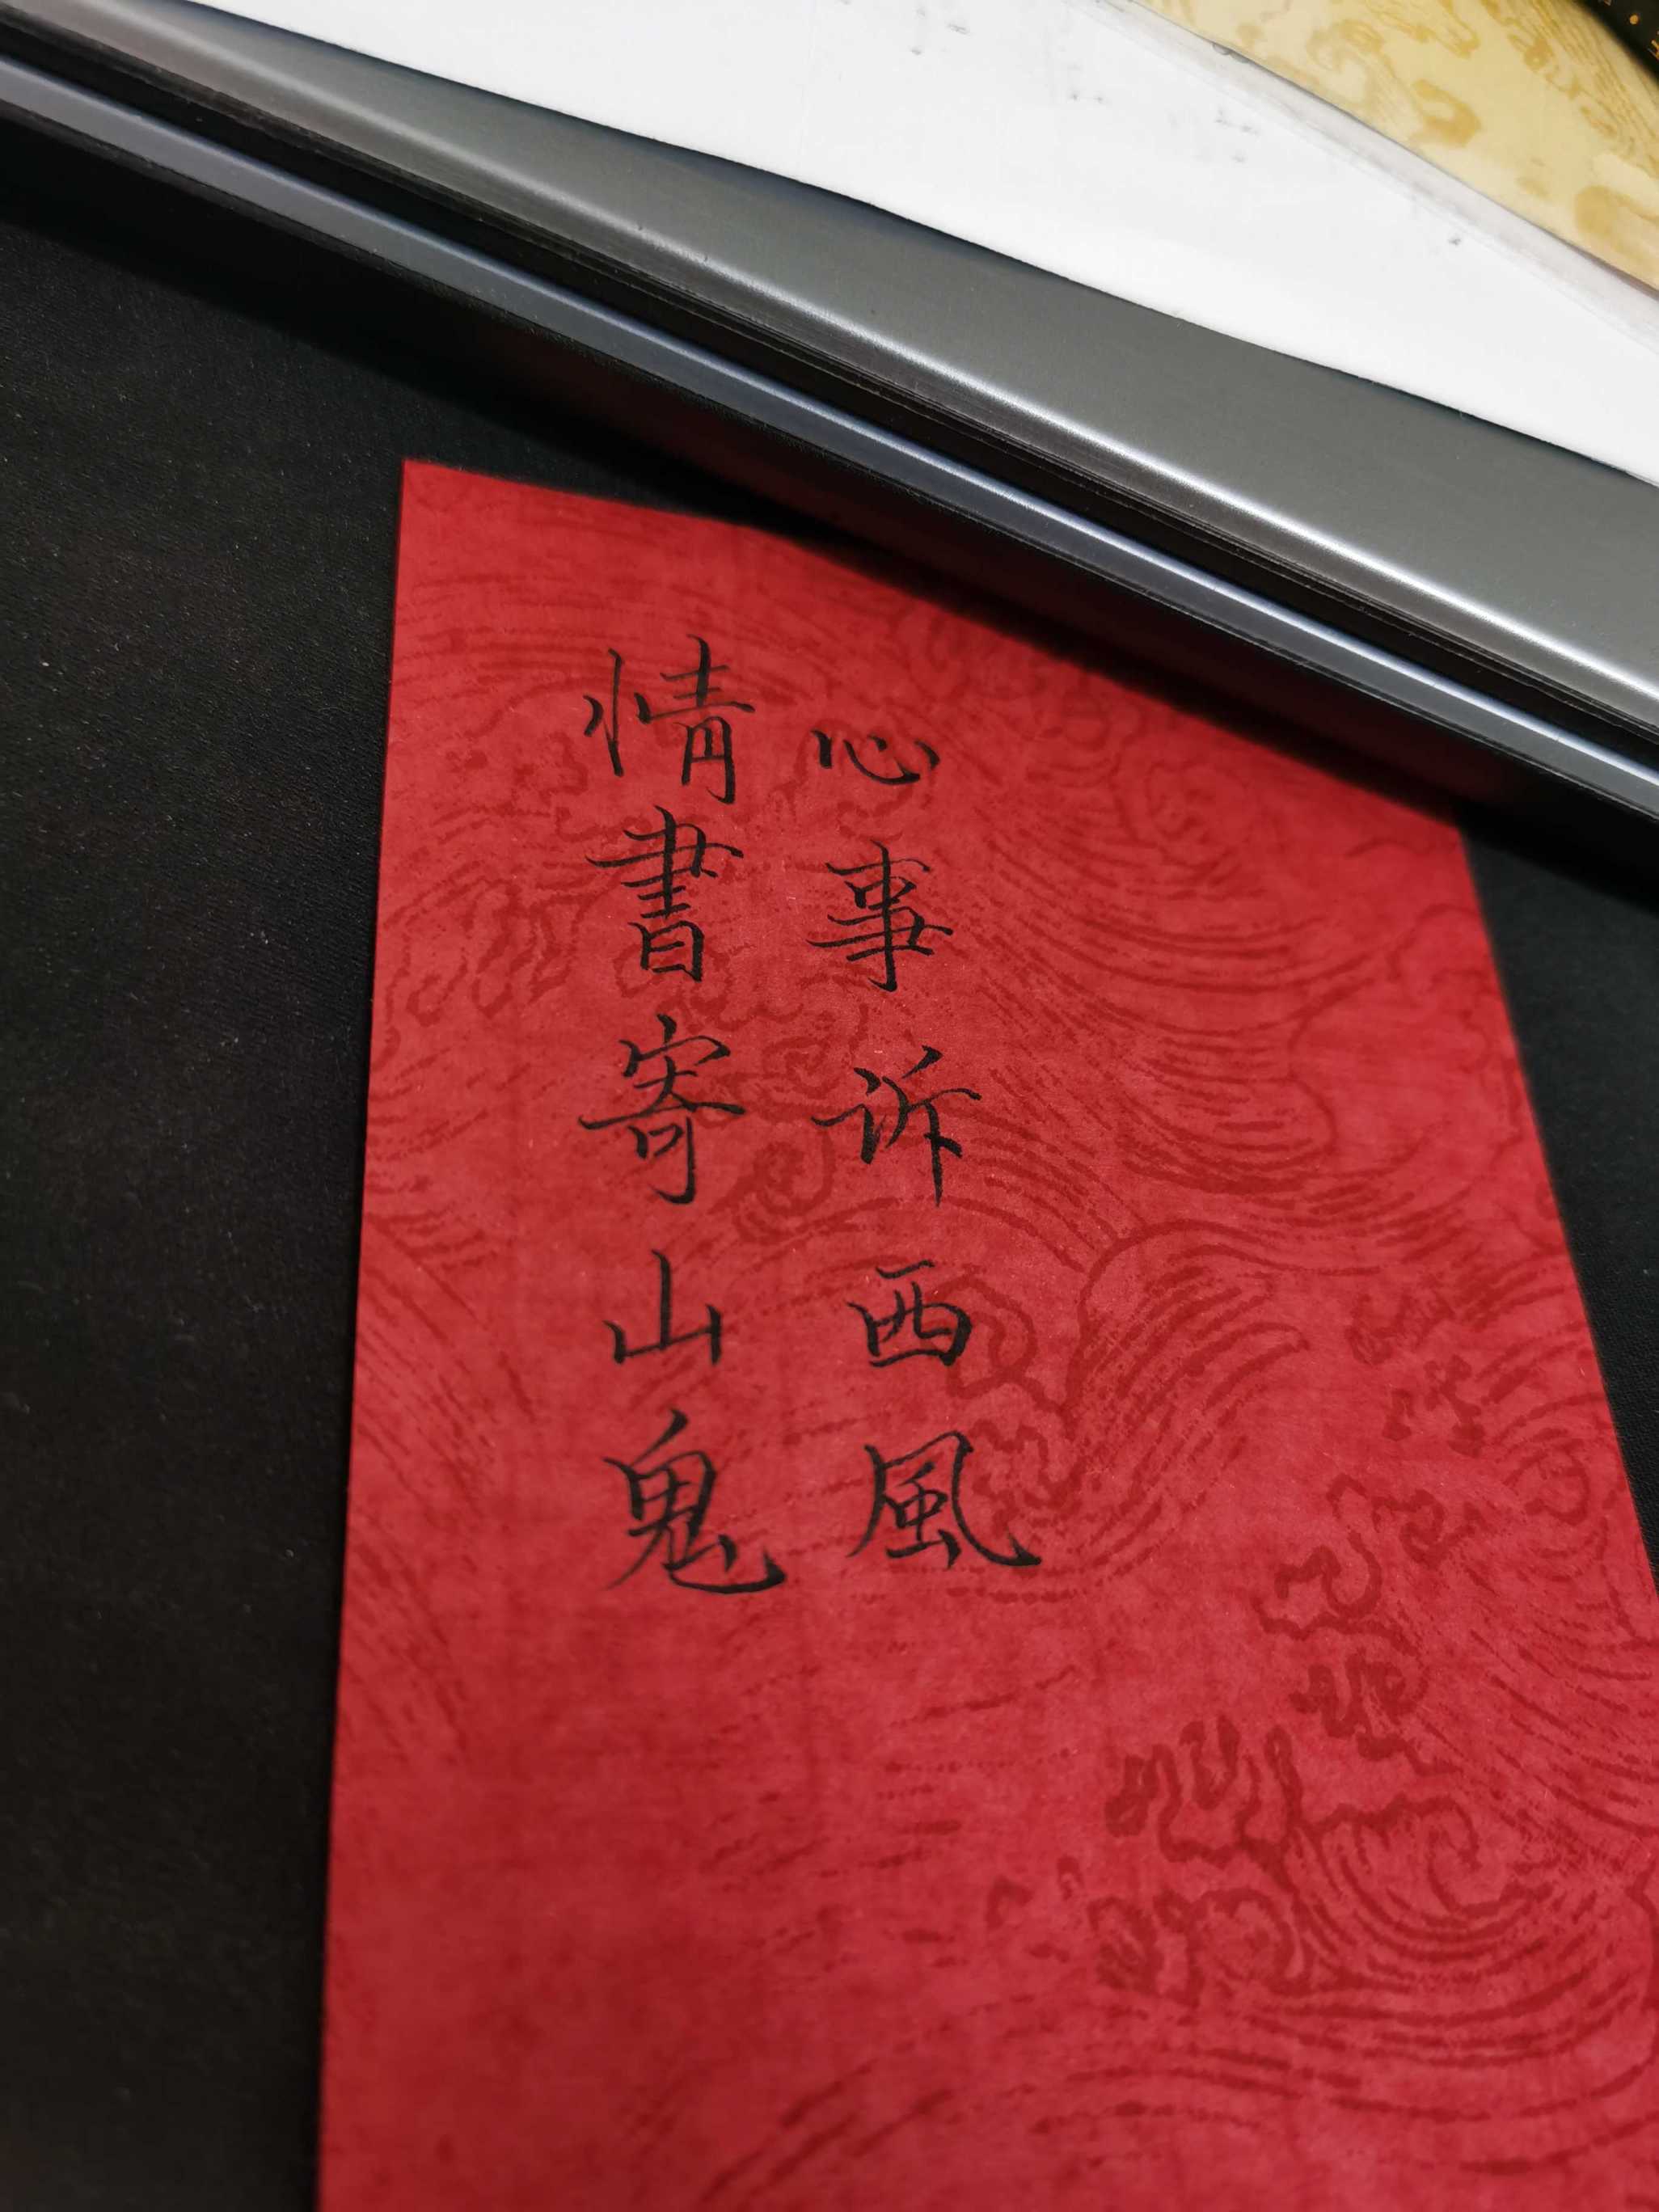 心事诉西風
情書寄山鬼